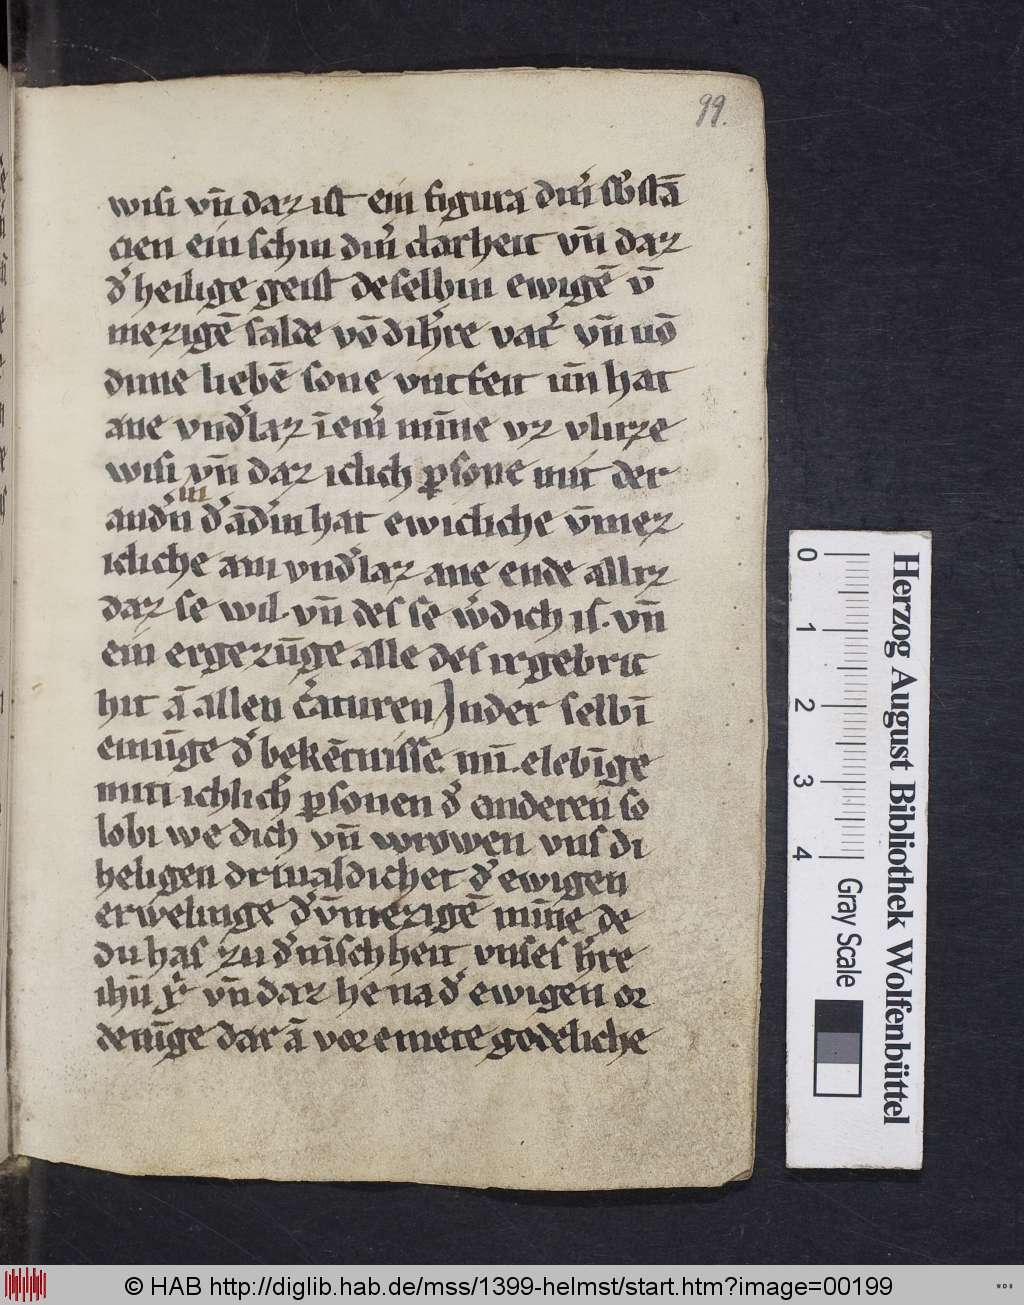 99.
wisi vn̄ daz ist ein figura din͛ sb͛stā
cien ein schin din͛ clarheit vn̄ daz
d͛ heilige geist deselbin ewigē v̄
mezigē salde vō dih͛re vat͛ vn̄ uō
dime liebē sone vnt feit un̄ hat
ane vnd͛laz ī em͛ min̄e vz vlizze
wisi vn̄ daz iclich ꝑsone mit der
and͛n d͛ ād͛in hat ewicliche v̄mez
icliche ain vnd͛laz ane ende alliz
daz se wil. vn̄ des se w͛dich is. vn̄
ein ergezūge alle des irgebric
hit ā allen c͛aturen Jnder selbī
einūge d͛ bekētnisse. mī. elebīge
miti ichlich͛ ꝑsonen d͛ anderen so
lobi we dich vn̄ vrowen vns di
heligen driualdichet d͛ ewigen
erwelinge d͛ v̄mezigē min̄e de
du has zu d͛ mīschheit vnses h͛re
ihū x͛ vn̄ daz he na d͛ ewigen or
denūge dar ā vor emete godeliche
0 1 2 3 4
Gray Scale
Herzog August Bibliothek Wolfenbüttel
© HAB http://diglib.hab.de/mss/1399-helmst/start.htm?image=00199